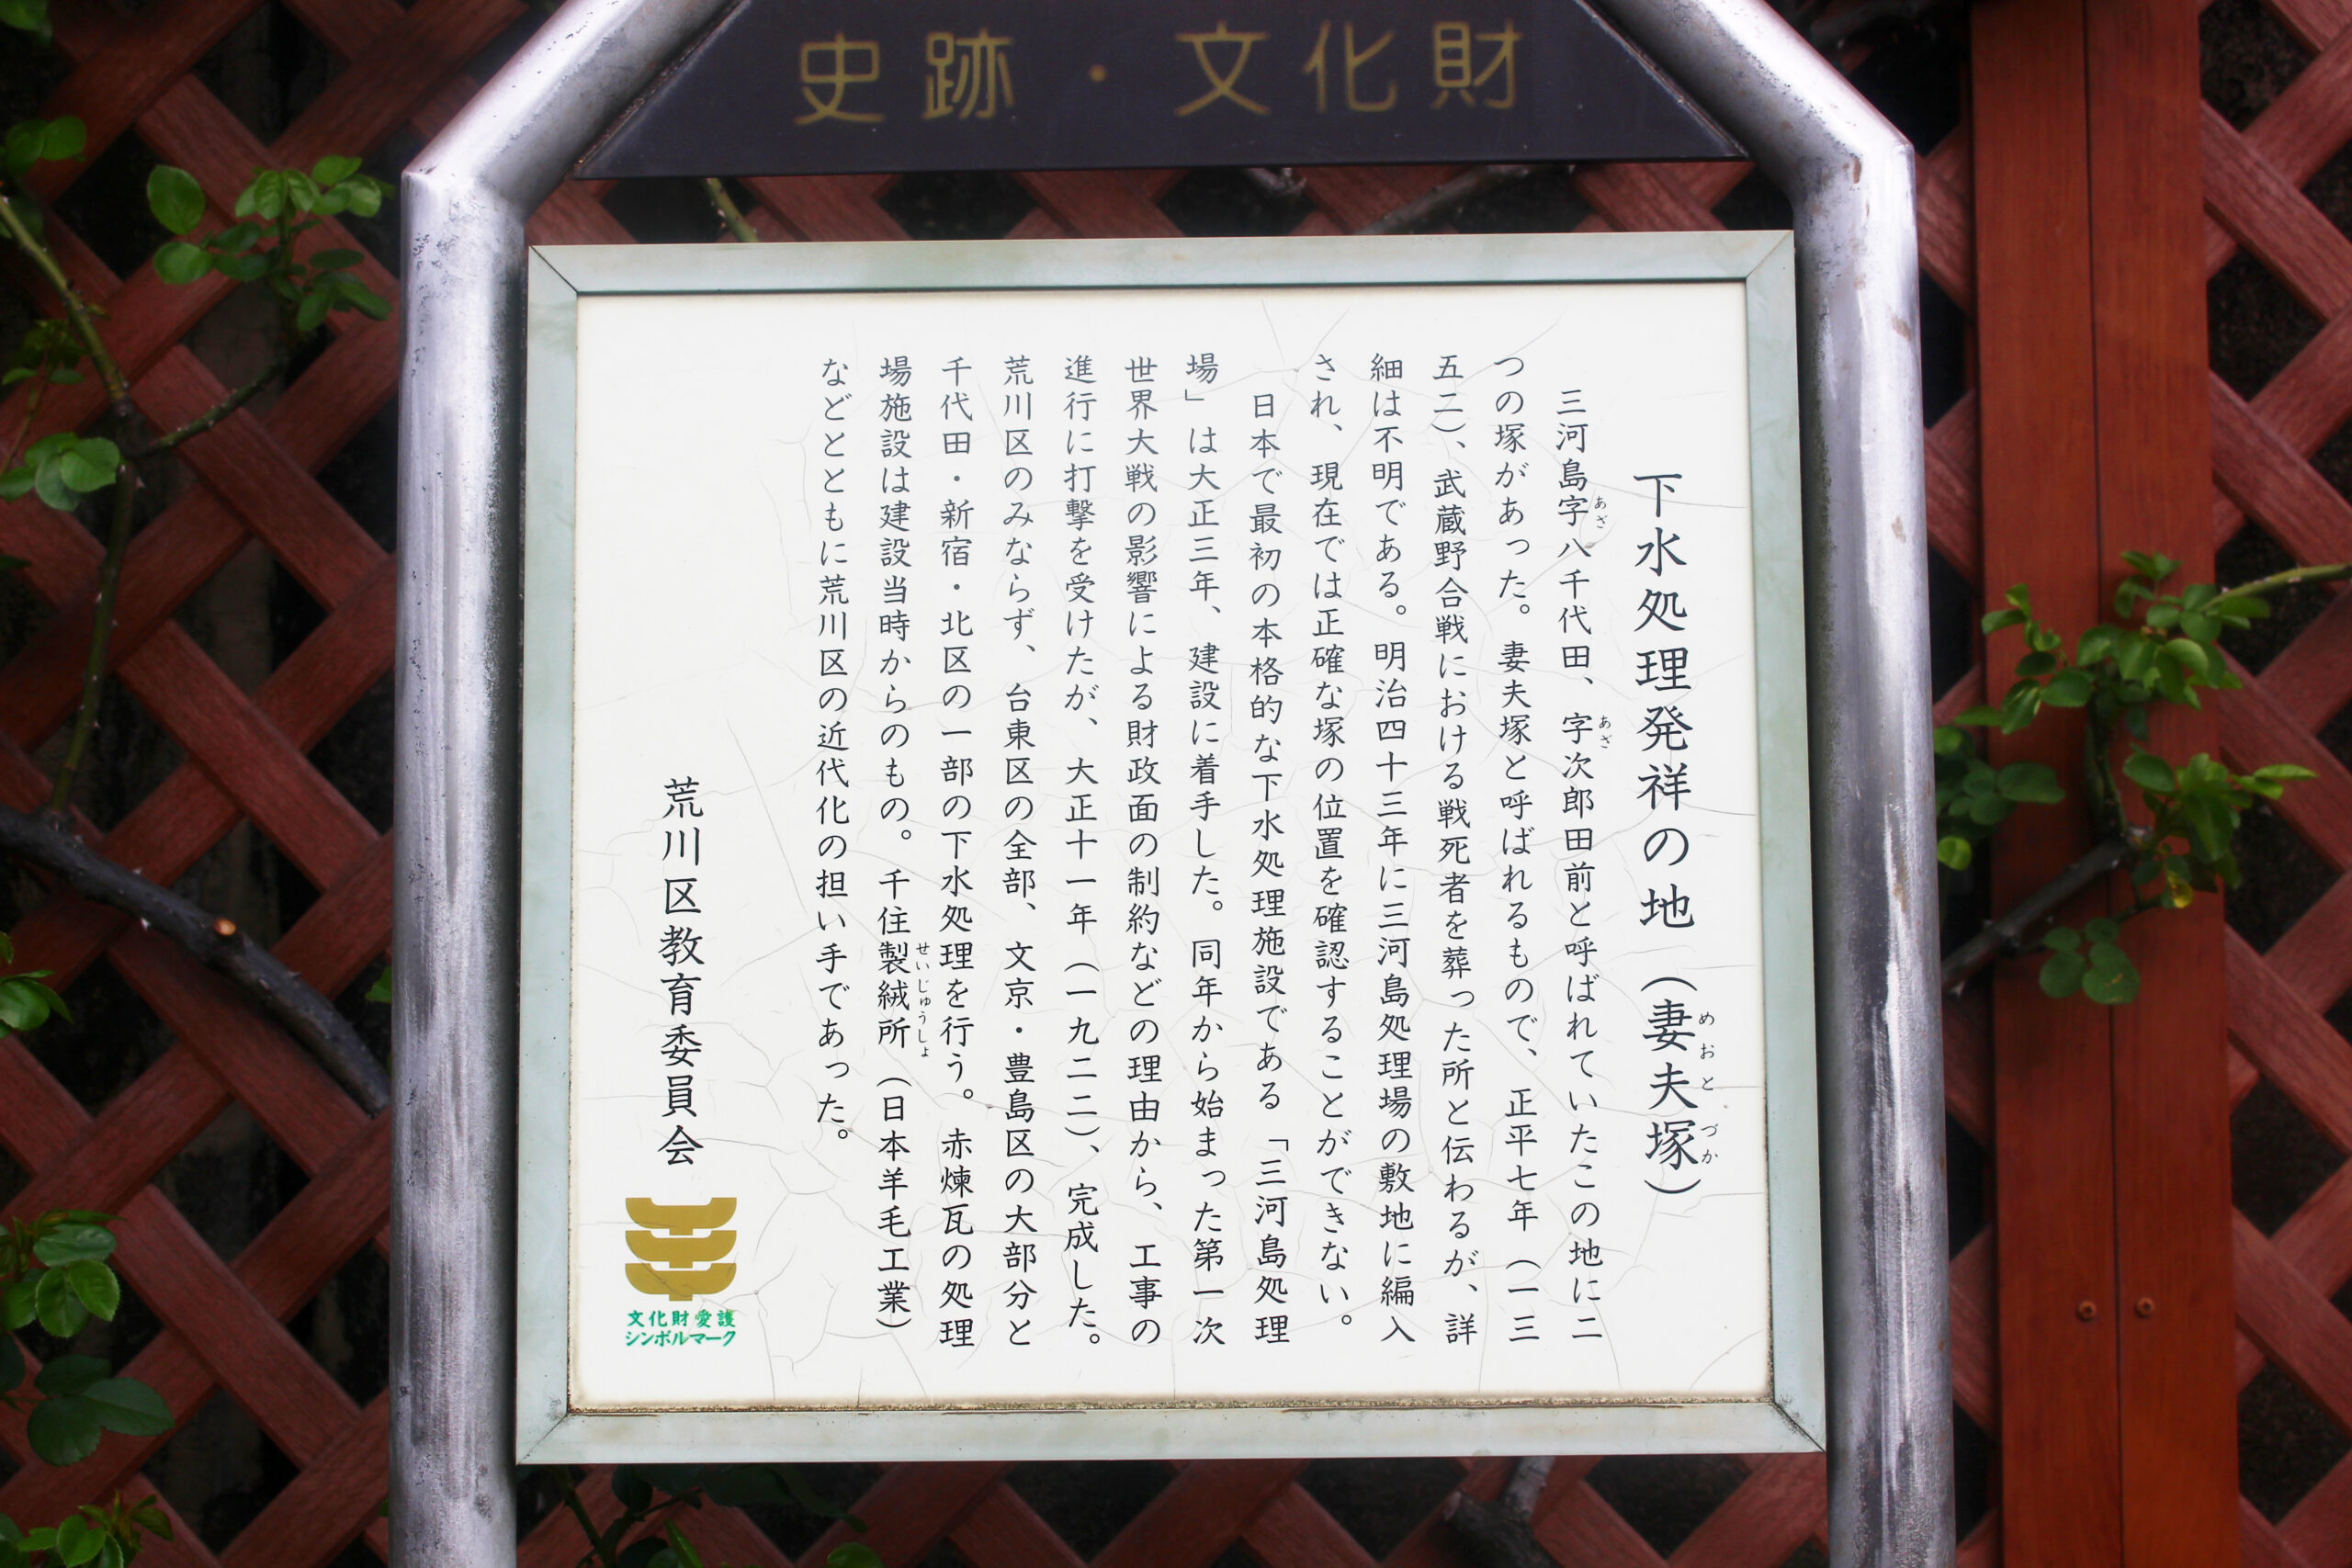 史跡・文化財
下水処理発祥の地（妻夫塚）
めおとづか
三河島字八千代田、字次郎田前と呼ばれていたこの地に二
あざ
あざ
つの塚があった。妻夫塚と呼ばれるもので、正平七年（一三
五二）、武蔵野合戦における戦死者を葬った所と伝わるが、詳
細は不明である。明治四十三年に三河島処理場の敷地に編入
され、現在では正確な塚の位置を確認することができない。
日本で最初の本格的な下水処理施設である「三河島処理
場」は大正三年、建設に着手した。同年から始まった第一次
世界大戦の影響による財政面の制約などの理由から、工事の
進行に打撃を受けたが、大正十一年（一九二二）、完成した。
荒川区のみならず、台東区の全部、文京・豊島区の大部分と
千代田・新宿・北区の一部の下水処理を行う。赤煉瓦の処理
場施設は建設当時からのもの。千住製絨所（日本羊毛工業）
せいじゅうしょ
などとともに荒川区の近代化の担い手であった。
荒川区教育委員会
文化財愛護
シンボルマーク